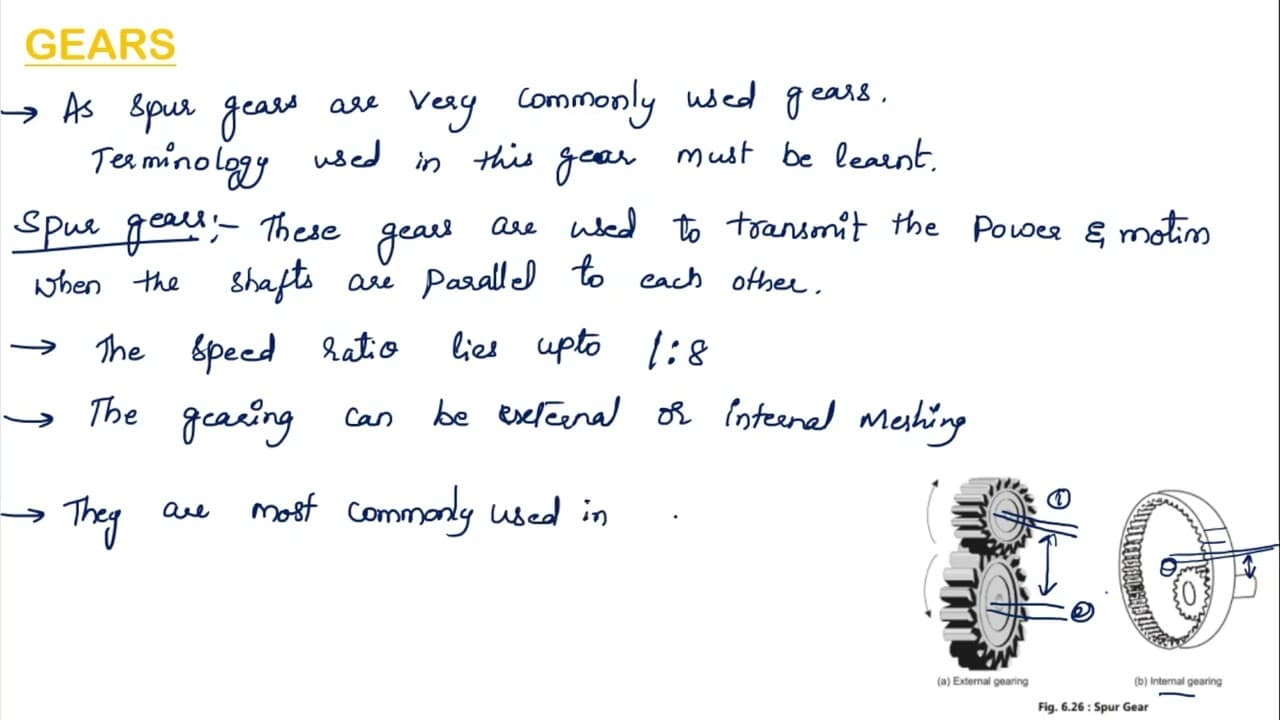 GEARS
→ As spur gears are very commonly used gears.
Terminology used in this gear must be learnt.
Spur gears:- These gears are used to transmit the Power & motion
when the shafts are parallel to each other.
→ The speed ratio lies upto 1:8
→ The gearing can be external or internal Meshing
→ They are most commonly used in
① 
②
(a) External gearing
(b) Internal gearing
Fig. 6.26 : Spur Gear